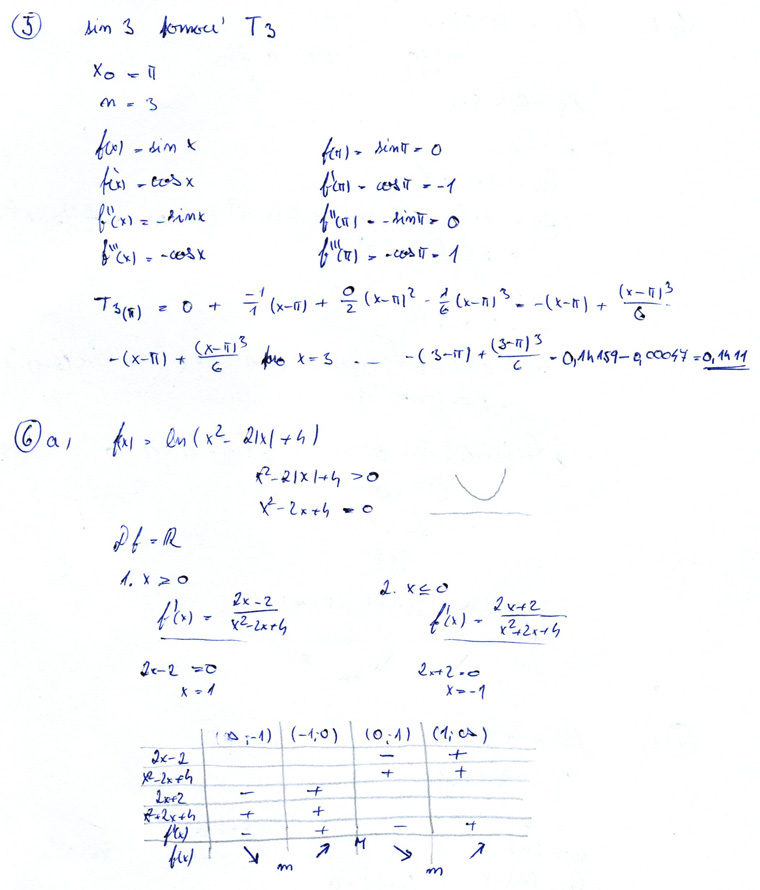 5 sin 3 pomocí T3
x0 = π
n = 3
f(x) = sin x f(π) = sin π = 0
f'(x) = cos x f'(π) = cos π = -1
f''(x) = -sin x f''(π) = -sin π = 0
f'''(x) = -cos x f'''(π) = -cos π = 1
T3(π) = 0 + -1/1 (x-π) + 0/2 (x-π)² - 1/6 (x-π)³ = -(x-π) + (x-π)³/6
-(x-π) + (x-π)³/6 pro x=3 .... -(3-π) + (3-π)³/6 = 0,14159 - 0,00047 = 0,1411
6 a, f(x) = ln(x² - 2|x| + 4)
x² - 2|x| + 4 > 0
x² - 2x + 4 = 0
Df = ℝ
1. x ≥ 0 2. x ≤ 0
f'(x) = 2x-2/x²-2x+4 f'(x) = 2x+2/x²+2x+4
2x-2 = 0 2x+2 = 0
x = 1 x = -1
(∞;-1) (-1;0) (0;1) (1;∞)
2x-2 - +
x²-2x+4 + +
2x+2 - +
x²+2x+4 + +
f'(x) - + - +
f(x) ↘ m ↗ M ↘ m ↗